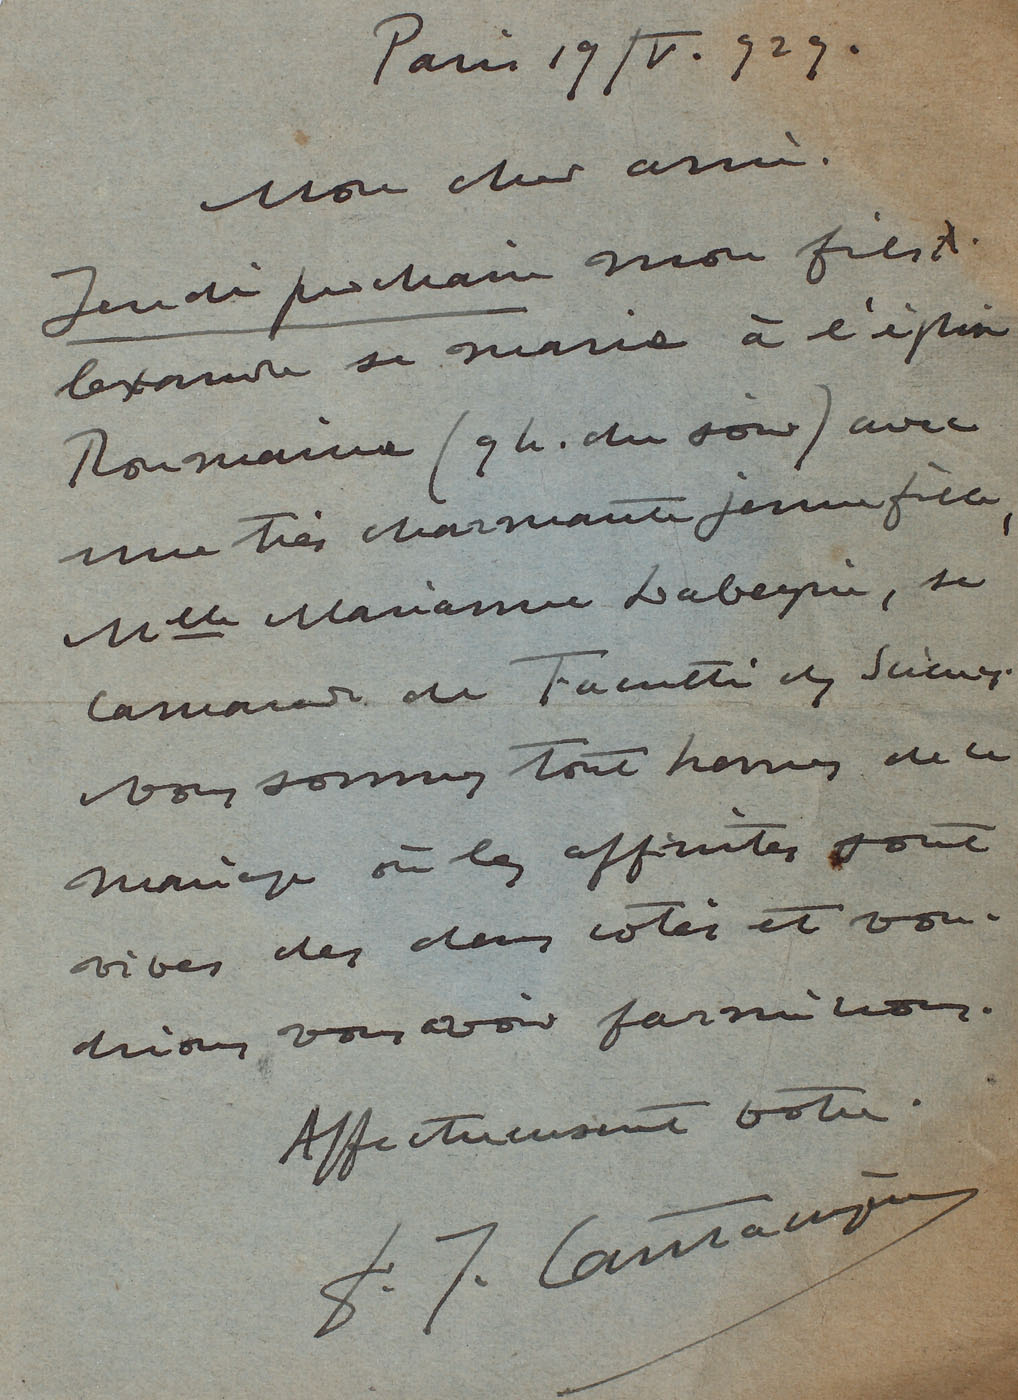 Paris 19/V. 929.
Mon cher ami.
Jeudi prochain mon fils A.
lexandre se marie à l'église
Roumaine (9 h. du soir) avec
une très charmante jeune fille,
Mlle Marianne Labeyrie, sa
camarade de Faculté des Sciences.
Nous sommes tout heureux de ce
mariage où les affinités sont
vives des deux côtés et vou-
drions vous avoir parmi nous.
Affectueusement votre.
J. Cantacuzène